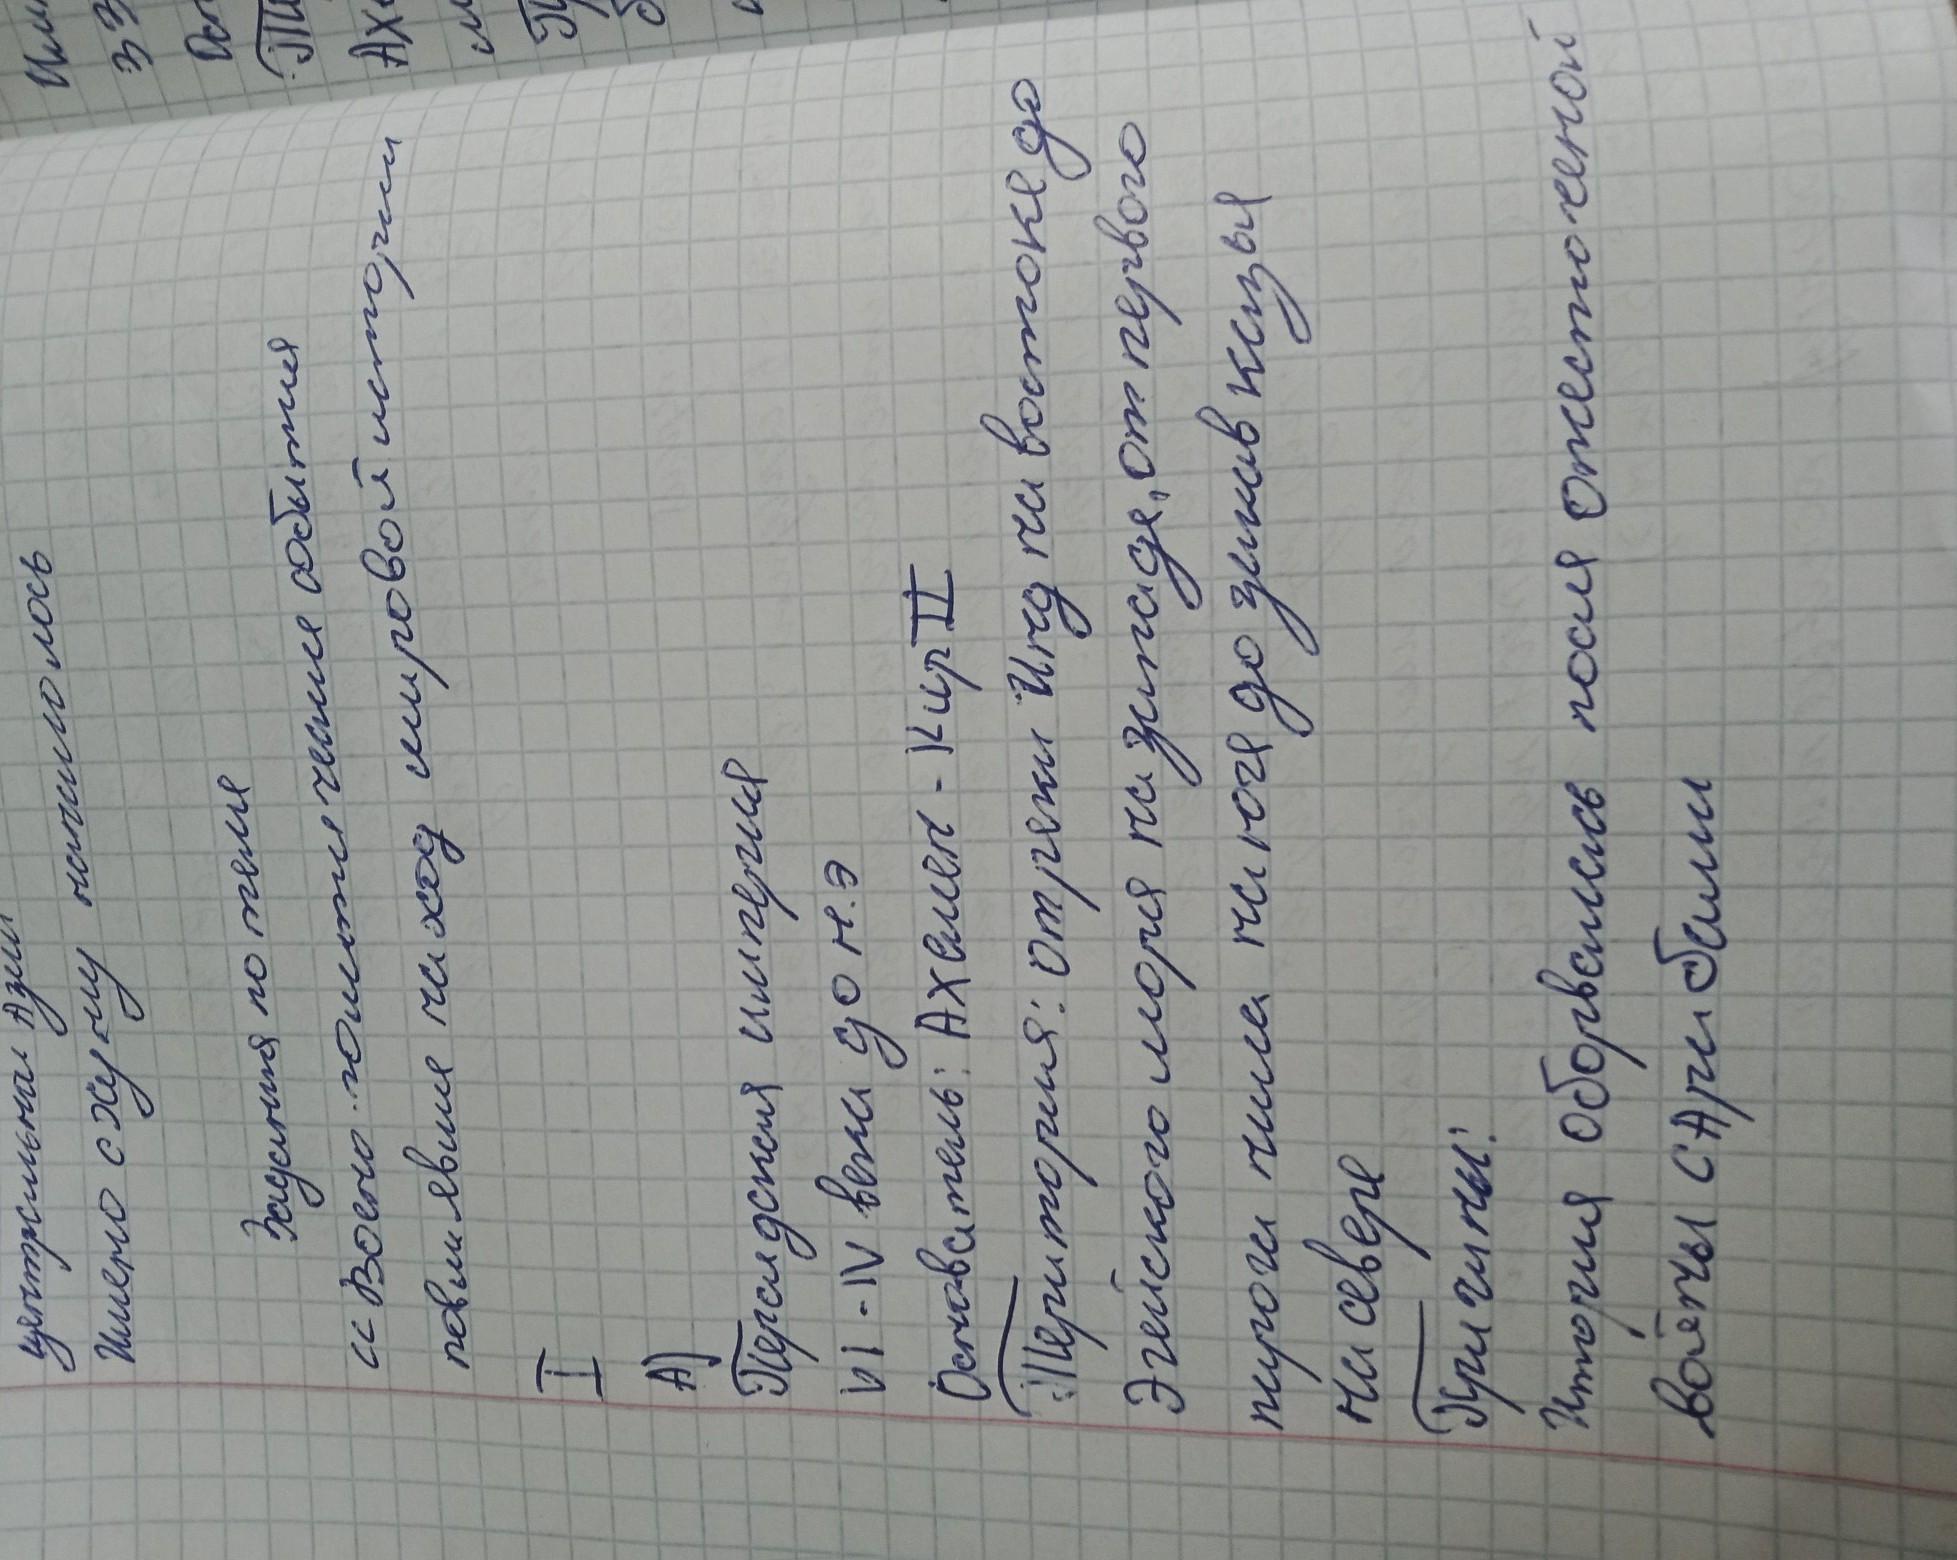 центжильнал Азии
Имено с Хунну начилолось
Задания по теме
<< Воено-политические события
повлиявшие на ход мировой истории
I
А)
Персидская империя
VI-IV века до н.э
Основатель: Ахемен-Кир II
Територия: от реки Инд на востоке до
Эгейского моря на западе, от первого
порога нила на юге до закавказья
на севере
Причины:
Итория оборвались посля ожесточеной
войны с Арабами